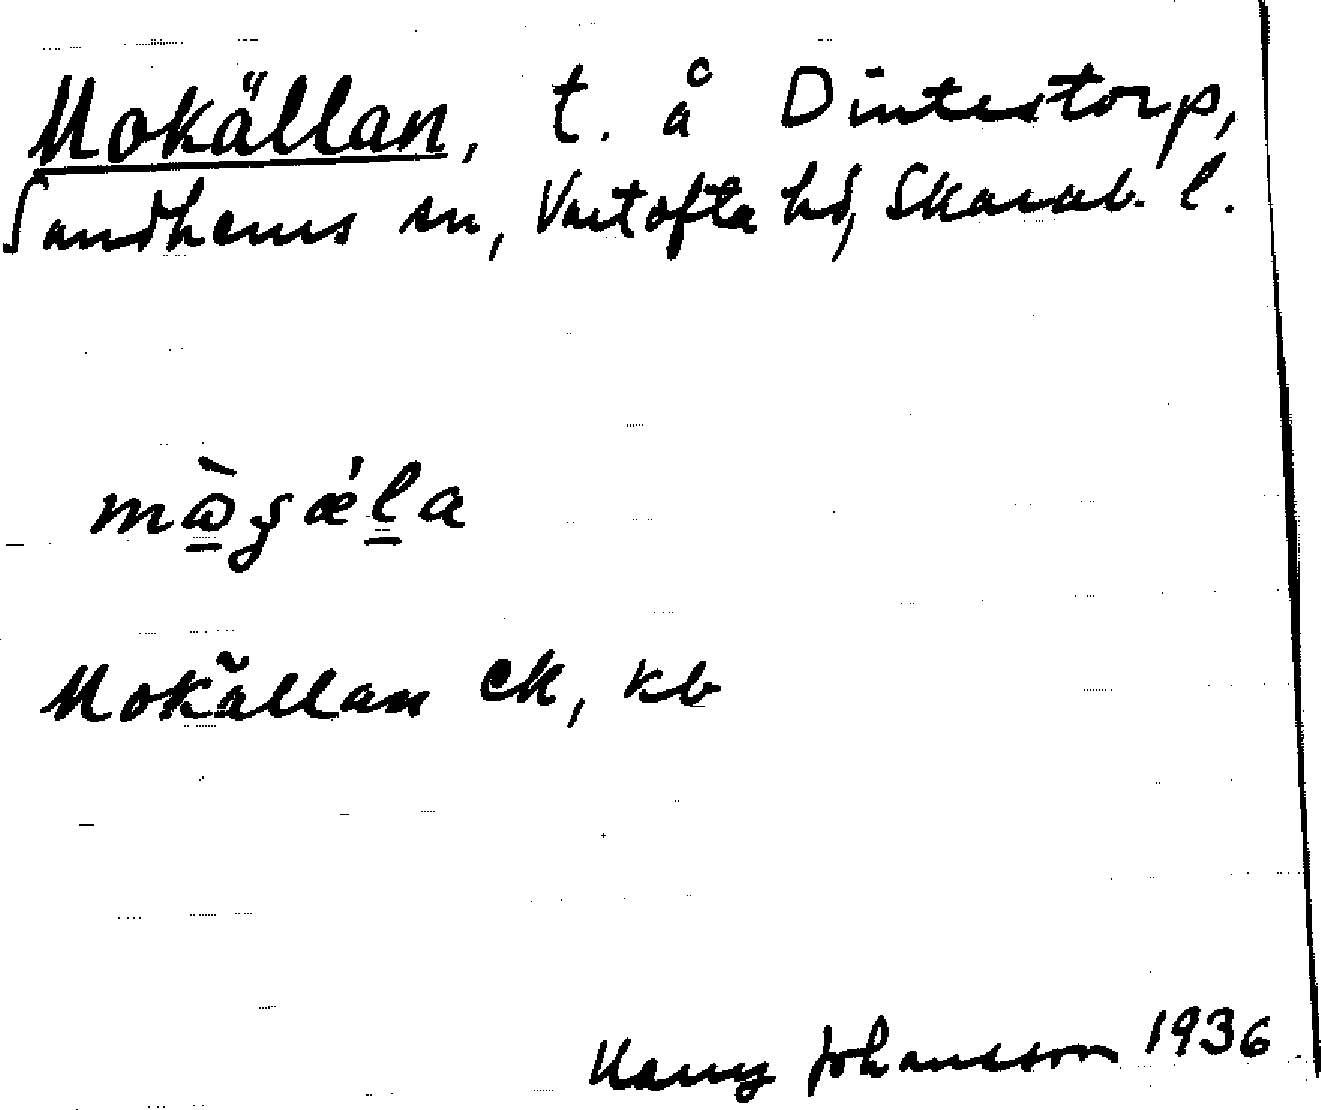 Mokällan, t. å Dintestorp,
Sandhems sn, Vartofta hd, Skarab. l.
mὼ̱ʒǽḻa
Mokällan ek, kb
Harry Johansson 1936